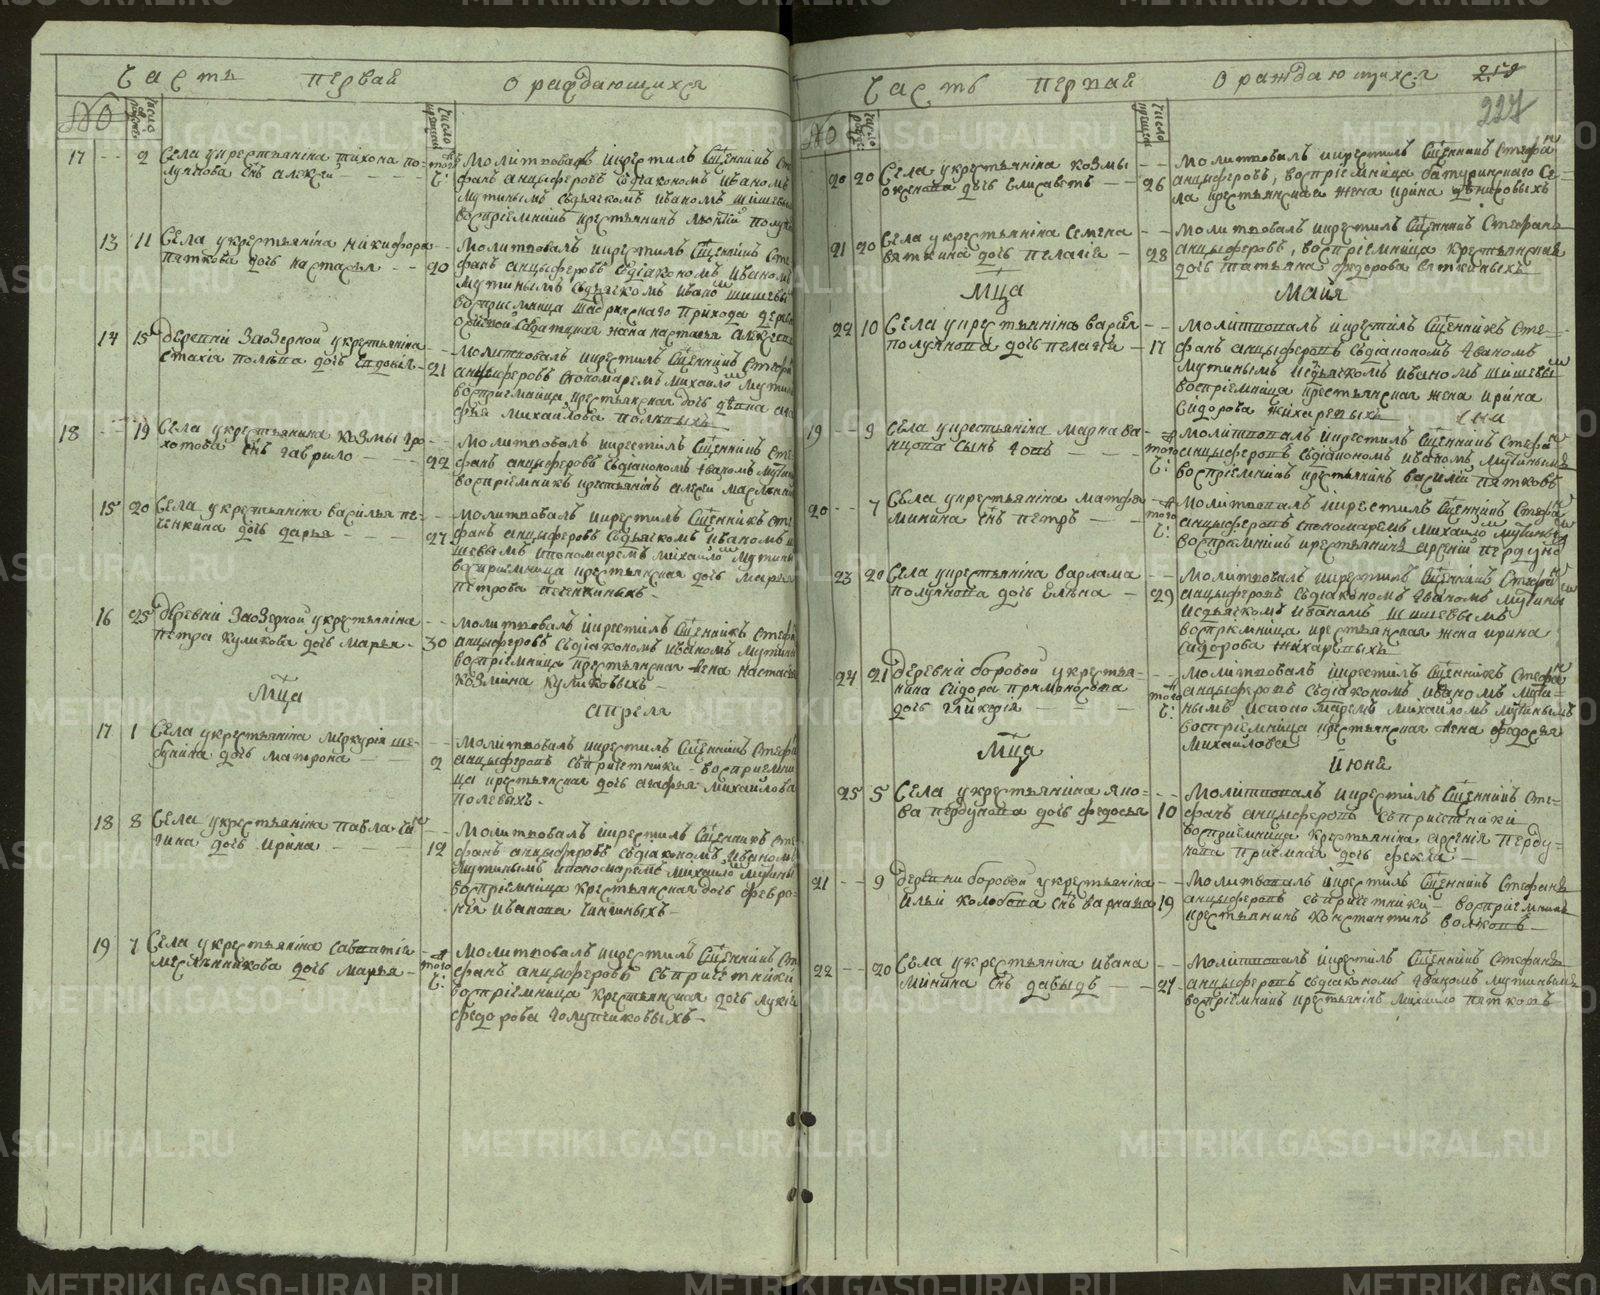 Часть первая о раждающихся
№
17 2 Села у крестьянина тихона по-
лупнова снъ алексей
молитвовалъ икрестилъ Сщенникъ Сте
фанъ анцыферовъ Сдіакономъ Иваномъ
Мутинымъ Сдьячкомъ Иваномъ шишевы
воспріемникъ крестьянинъ
13 11 Села укрестьянина никифора
пяткова дочь настасья 20
молитвовалъ икрестилъ Сщенникъ Сте
фанъ анцыферовъ Сдіакономъ Иваномъ
Мутинымъ Сдьячкомъ Иваномъ шишевы
воспріемница Шадринскаго прихода дерев
жена настасья
14 15 деревни Заозерной укрестьянина
дочь Евдокія 21
молитвовалъ икрестилъ Сщенникъ Стефа
анцыферовъ Спономаремъ Михаиломъ Мутин
воспріемница крестьянская дочь девка ага
фья Михайлова
18 19 Села укрестьянина козмы гро
хотова снъ гаврило 22
молитвовалъ икрестилъ Сщенникъ Сте
фанъ анцыферовъ Сдіакономъ Иваномъ Мутин
воспріемникъ крестьянинъ
15 20 Села укрестьянина василья пе-
ченкина дочь дарья 27
молитвовалъ икрестилъ Сщенникъ Сте
фанъ анцыферовъ Сдьячкомъ Иваномъ ши
шевымъ ипономаремъ михаиломъ Мутины
воспріемница крестьянская дочь Марья
Петрова печенкиныхъ
16 25 деревни Заозерной укрестьянина
петра куликова дочь марья 30
молитвовалъ икрестилъ Сщенникъ Стефа
анцыферовъ Сдіакономъ Иваномъ Мутины
воспріемница крестьянская жена настасья
козмина куликовыхъ
Мца апреля
17 1 Села укрестьянина меркурія ше-
дочь матрона 2
молитвовалъ икрестилъ Сщенникъ Стефа
анцыферовъ Спричетники воспріемни
ца крестьянская дочь агафья михайлова
полевыхъ
18 8 Села укрестьянина павла чи
гина дочь Ирина 12
молитвовалъ икрестилъ Сщенникъ Сте
фанъ анцыферовъ Сдіакономъ Иваномъ
Мутинымъ ипономаремъ Михаиломъ Мутины
воспріемница крестьянская дочь февро-
нія Иванова чигиныхъ
19 7 Села укрестьянина саватія
дочь Марья того ч:
молитвовалъ икрестилъ Сщенникъ Сте
фанъ анцыферовъ Спричетники
воспріемница крестьянская дочь лукія
федорова голупчиковыхъ
Часть первая о раждающихся 259
227
№
20 20 Села укрестьянина козмы
дочь Елисаветъ 26
молитвовалъ икрестилъ Сщенникъ Стефанъ
анцыферовъ, воспріемница батуринскаго Се-
ла крестьянская жена ирина
21 20 Села укрестьянина Семена
вяткина дочь пелагія 28
молитвовалъ икрестилъ Сщенникъ Стефанъ
анцыферовъ, воспріемница крестьянская
дочь татьяна федорова вяткиныхъ
Мца Майя
22 10 Села укрестьянина
дочь пелагія 17
молитвовалъ икрестилъ Сщенникъ Сте-
фанъ анцыферовъ Сдіакономъ Иваномъ
Мутинымъ Исдьячкомъ Иваномъ шишевы
воспріемница крестьянская жена ирина
Сидорова жихаревыхъ
19 9 Села укрестьянина марка ва
Сынъ того ч:
молитвовалъ икрестилъ Сщенникъ Стефа
анцыферовъ Сдіакономъ Иваномъ Мутинымъ
воспріемникъ крестьянинъ василій пятковъ
20 7 Села укрестьянина матфея
минина снъ петръ того ч:
молитвовалъ икрестилъ Сщенникъ Стефа
анцыферовъ Спономаремъ Михаиломъ Мутины
воспріемникъ крестьянинъ арсеній пердуно
23 20 Села укрестьянина варлама
дочь Елена 29
молитвовалъ икрестилъ Сщенникъ Стефа
анцыферовъ Сдіакономъ Иваномъ Мутины
Исдьячкомъ Иваномъ Шишевымъ
воспріемница крестьянская жена ирина
Сидорова жихаревыхъ
24 21 деревни боровой укрестья-
нина Сидора
дочь гликерія того ч:
молитвовалъ икрестилъ Сщенникъ Стефа
анцыферовъ Сдіакономъ Иваномъ Мути-
нымъ Испономаремъ Михаиломъ Мутинымъ
воспріемница крестьянская жена федосья
Михайлова
Мца Июня
25 5 Села укрестьянина яко-
ва пердунова дочь федосья 10
молитвовалъ икрестилъ Сщенникъ Сте-
фанъ анцыферовъ Спричетники
воспріемница крестьянина арсенія перду-
нова приемная дочь фекла
21 9 деревни боровой укрестьянина
Ильи колобова снъ варнава 19
молитвовалъ икрестилъ Сщенникъ Стефанъ
анцыферовъ Спричетники воспріемникъ
крестьянинъ константинъ волковъ
22 20 Села укрестьянина ивана
минина снъ давыдъ 21
молитвовалъ икрестилъ Сщенникъ Стефанъ
анцыферовъ Сдіакономъ Иваномъ мутинымъ
воспріемникъ крестьянинъ михаило пятковъ
METRIKI.GASO-URAL.RU